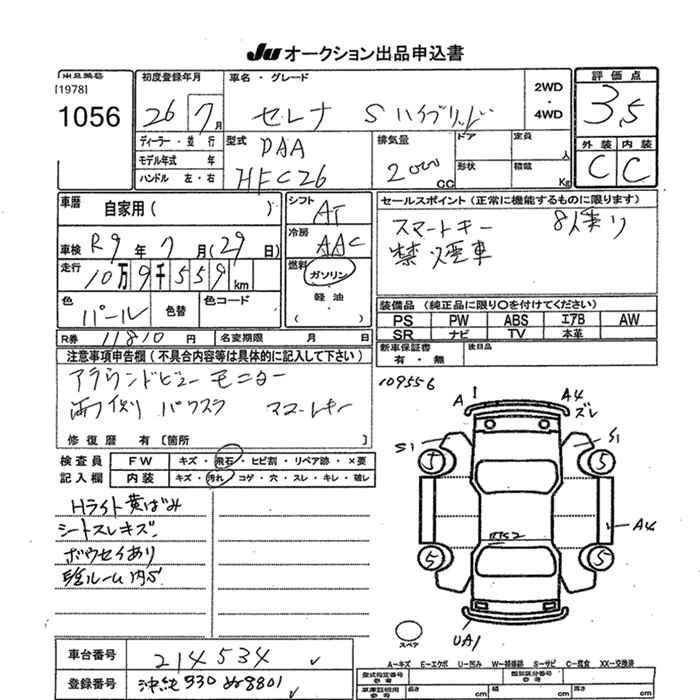 JU オークション出品申込書
出品番号
[1978]
1056
初度登録年月
26 年 7 月
車名・グレード
セレナ Sハイブリッド
2WD
・
4WD
評価点
3.5
外装 内装
C C
ディーラー・並行
モデル年式 年
ハンドル 左・右
型式
DAA
HFC26
排気量
2000 CC
ドア
形状
定員
人
積載
Kg
車歴
自家用( )
車検 R9 年 7 月(29 日)
走行 10万9千559 km
色
パール
色替
色コード
シフト
AT
冷房
AAC
燃料
ガソリン
・
軽油
( )
セールスポイント(正常に機能するものに限ります)
スマートキー 8人乗り
禁煙車
装備品(純正品に限り○を付けてください)
PS PW ABS エアB AW
SR ナビ TV 本革
新車保証書
有・無
後日品
R券 11810 円 名変期限 月 日
注意事項申告欄(不具合内容等は具体的に記入して下さい)
アラウンドビューモニター
両側パワスラ スマートキー
修復歴 有[箇所 ]
検査員
記入欄
FW キズ・飛石・ヒビ割・リペア跡・×要
内装 キズ・汚れ・コゲ・穴・スレ・キレ・破レ
Hライト黄ばみ
シートスレキズ
ボウセイあり
109556
A A4
ズレ
S1 S1
5 5
A4
5 5
UA1
スペア
車台番号 214534
登録番号 沖縄 530 ぬ 8801
A-キズ E-エクボ U-凹み W-補修跡 S-サビ C-腐食 XX-交換済
型式指定番号
類別区分番号
長さ cm 幅 cm 高さ cm